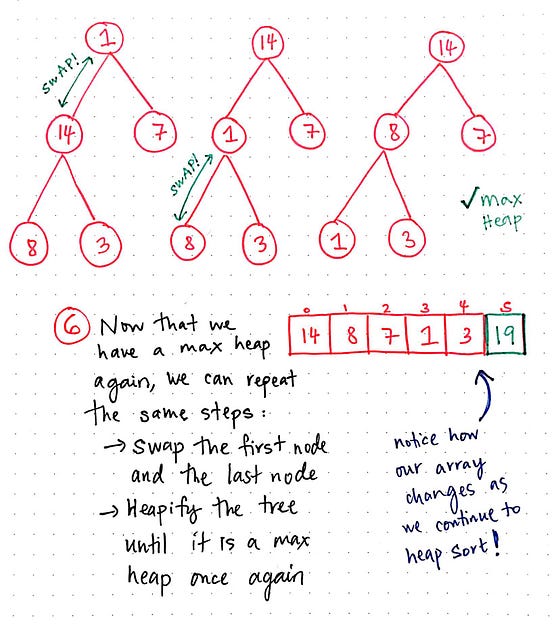 1
14
14
SWAP!
14
7
1
7
8
7
SWAP!
8
3
8
3
1
3
✓max
Heap
0 1 2 3 4 5
14 8 7 1 3 19
6 Now that we
have a max heap
again, we can repeat
the same steps:
→ Swap the first node
and the last node
→ Heapify the tree
until it is a max
heap once again
notice how
our array
changes as
we continue to
heap sort!